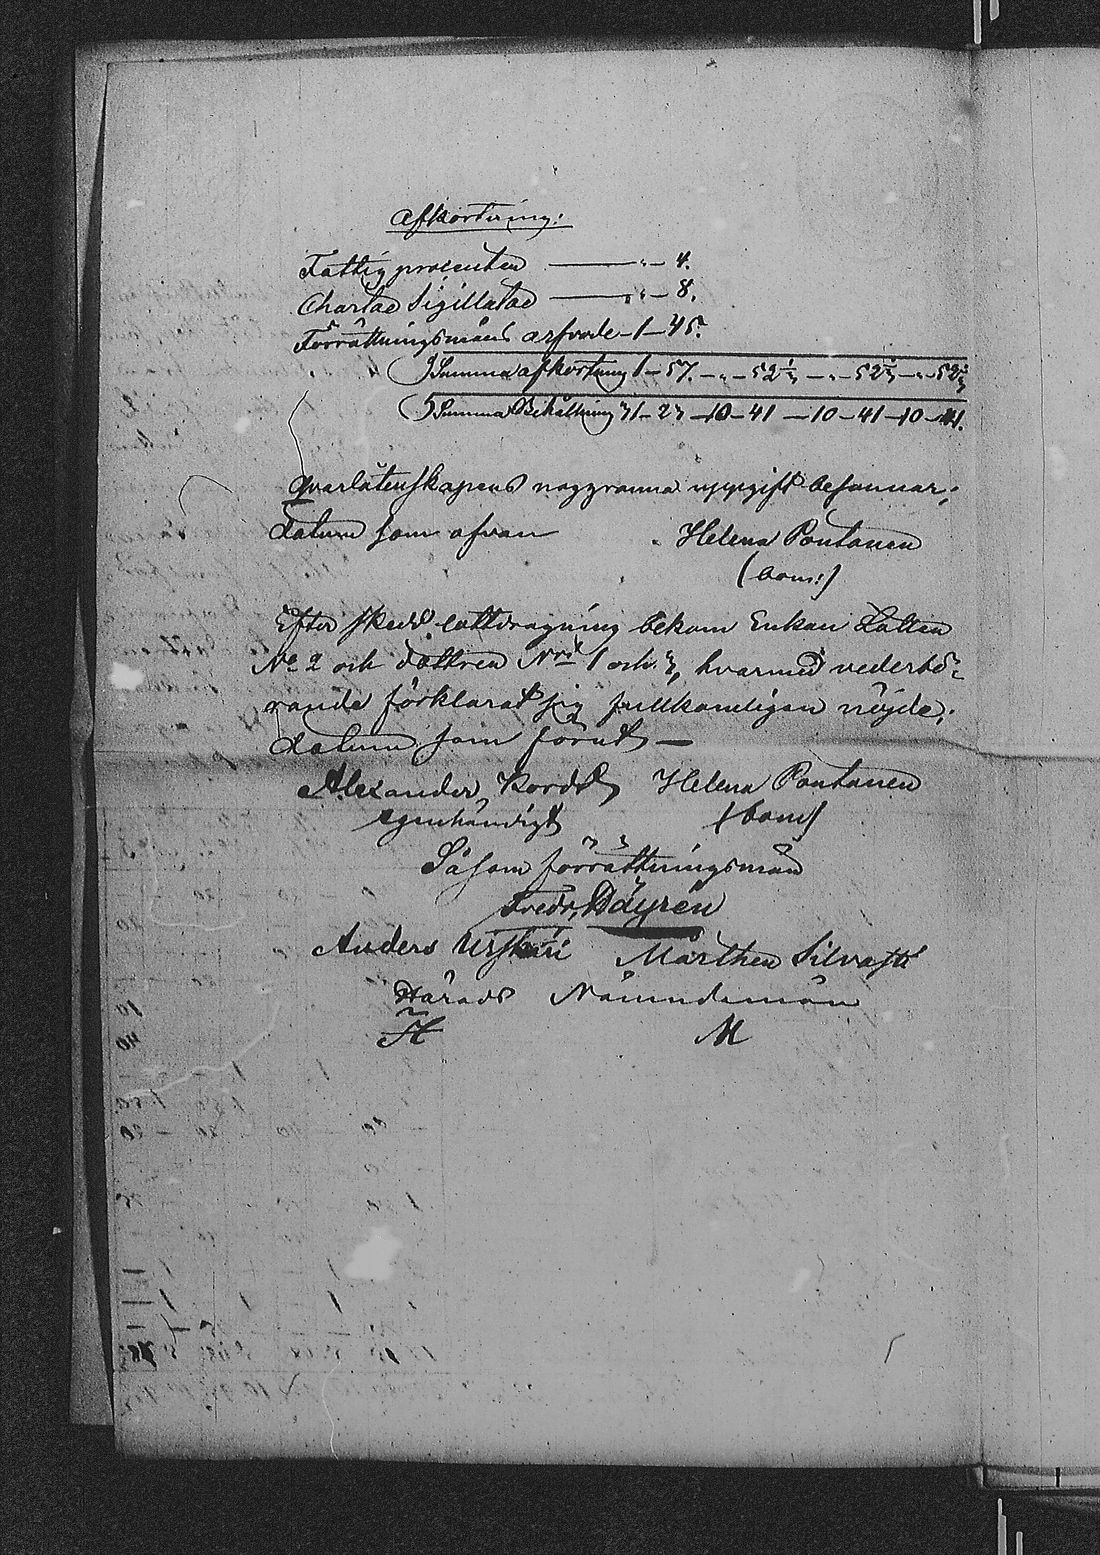 Afkortning:
Fattigprocenten — " — 4.
Chartae Sigillatae — " — 8.
Förrättningsmäns arfvode — 1 — 45.
Summa afkortning 1 — 57. — " — 52 1/3 — " — 52 1/3 — " — 52 1/3
Summa Behållning 31 — 23 — 10 — 41 — 10 — 41 — 10 — 41.
Qvarlåtenskapens noggranna uppgift besannar;
datum som ofvan Helena Pontanen
(bom:)
Efter skedd lottdragning bekom Enkan Lotten
No 2 och döttren Nris 1 och 3, hvarmed vederbö-
rande förklarat sig fullkomligen nöjde;
datum som förut —
Alexander Kordt Helena Pontanen
egenhändigt (bom)
Såsom förrättningsmän
Fredr.
Anders Mårthen Silvasti
Härads Nämndemän
H M